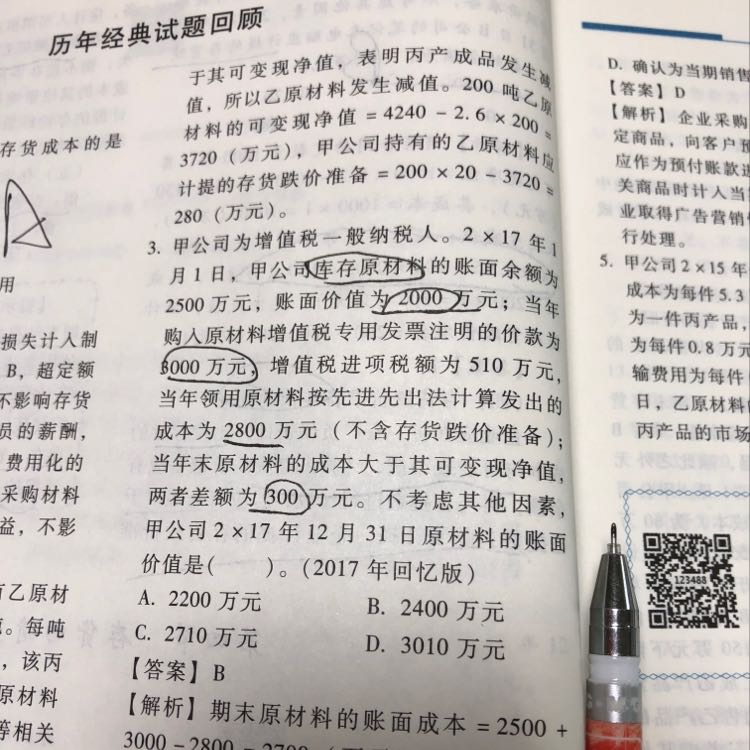 历年经典试题回顾
存货成本的是
用
损失计入制
B，超定额
不影响存货
员的薪酬，
费用化的
采购材料
益，不影
有乙原材
。每吨
，该丙
原材料
等相关
于其可变现净值，表明丙产成品发生减
值，所以乙原材料发生减值。200 吨乙原
材料的可变现净值 = 4240 - 2.6 × 200 =
3720（万元），甲公司持有的乙原材料应
计提的存货跌价准备 = 200 × 20 - 3720 =
280（万元）。
3. 甲公司为增值税一般纳税人。2 × 17 年 1
月 1 日，甲公司库存原材料的账面余额为
2500 万元，账面价值为 2000 万元；当年
购入原材料增值税专用发票注明的价款为
3000 万元，增值税进项税额为 510 万元，
当年领用原材料按先进先出法计算发出的
成本为 2800 万元（不含存货跌价准备）；
当年末原材料的成本大于其可变现净值，
两者差额为 300 万元。不考虑其他因素，
甲公司 2 × 17 年 12 月 31 日原材料的账面
价值是(　　)。(2017 年回忆版)
A. 2200 万元　　B. 2400 万元
C. 2710 万元　　D. 3010 万元
【答案】B
【解析】期末原材料的账面成本 = 2500 +
3000 - 2800 = 2700
D. 确认为当期销售
【答案】D
【解析】企业采购
定商品，向客户预
应作为预付账款进
关商品时计入当
业取得广告营销
行处理。
5. 甲公司 2 × 15 年
成本为每件 5.3
为一件丙产品，
为每件 0.8 万元
输费用为每件
日，乙原材料
丙产品的市场
123488